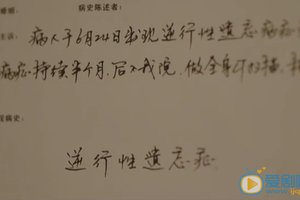 病史陈述者：
病人于6月24日出现逆行性遗忘病症
病症持续半个月，后入我院，做全身CT扫描，
病史：
逆行性遗忘症
爱剧